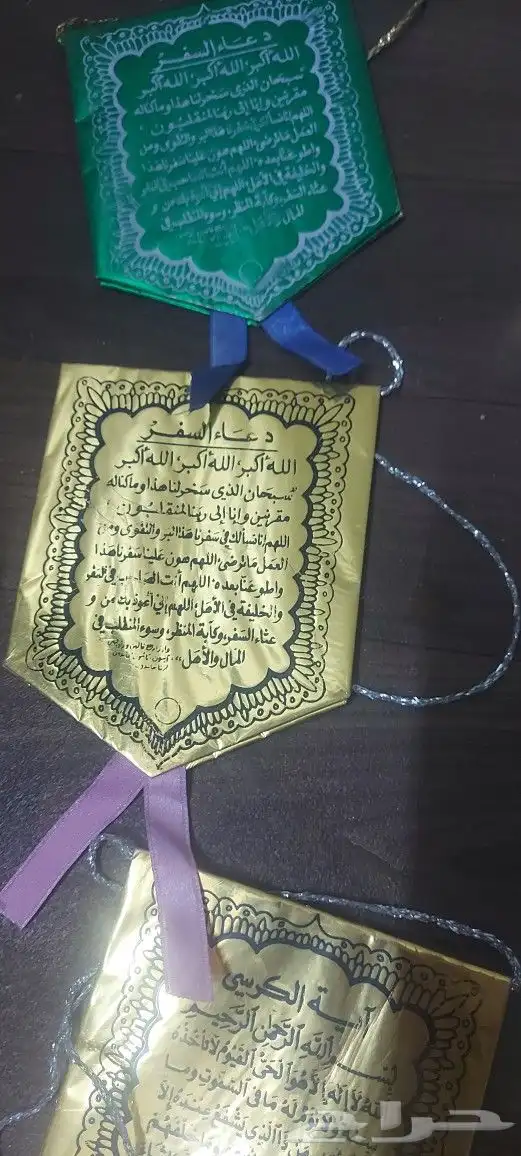 دعاء السفر
الله أكبر الله أكبر الله أكبر
سبحان الذي سخر لنا هذا وماكناله
مقرنين وإنا إلى ربنا لمنقلبون
اللهم إنا نسألك في سفرنا هذا البر والتقوى ومن
العمل ماترضى اللهم هون علينا سفرنا هذا
واطوعنا بعده اللهم أنت الصاحب في السفر
والخليفة في الأهل اللهم إني أعوذ بك من
وعثاء السفر وكآبة المنظر وسوء المنقلب في
المال والأهل
دعاء السفر
الله أكبر الله أكبر الله أكبر
سبحان الذي سخر لنا هذا وماكناله
مقرنين وانا الى ربنا لمنقلبون
اللهم إنا نسألك في سفرنا هذا البر والتقوى ومن
العمل ماترضى اللهم هون علينا سفرنا هذا
واطوعنا بعده اللهم أنت الصاحب في السفر
والخليفة في الأهل اللهم إني أعوذ بك من و
عثاء السفر وكآبة المنظر وسوء المنقلب في
المال والأهل
آية الكرسي
بسم الله الرحمن الرحيم
الله لا إله إلا هو الحي القيوم لا تأخذه
سنة ولا نوم له ما في السموات وما
من ذا الذي يشفع عنده إلا
حراج